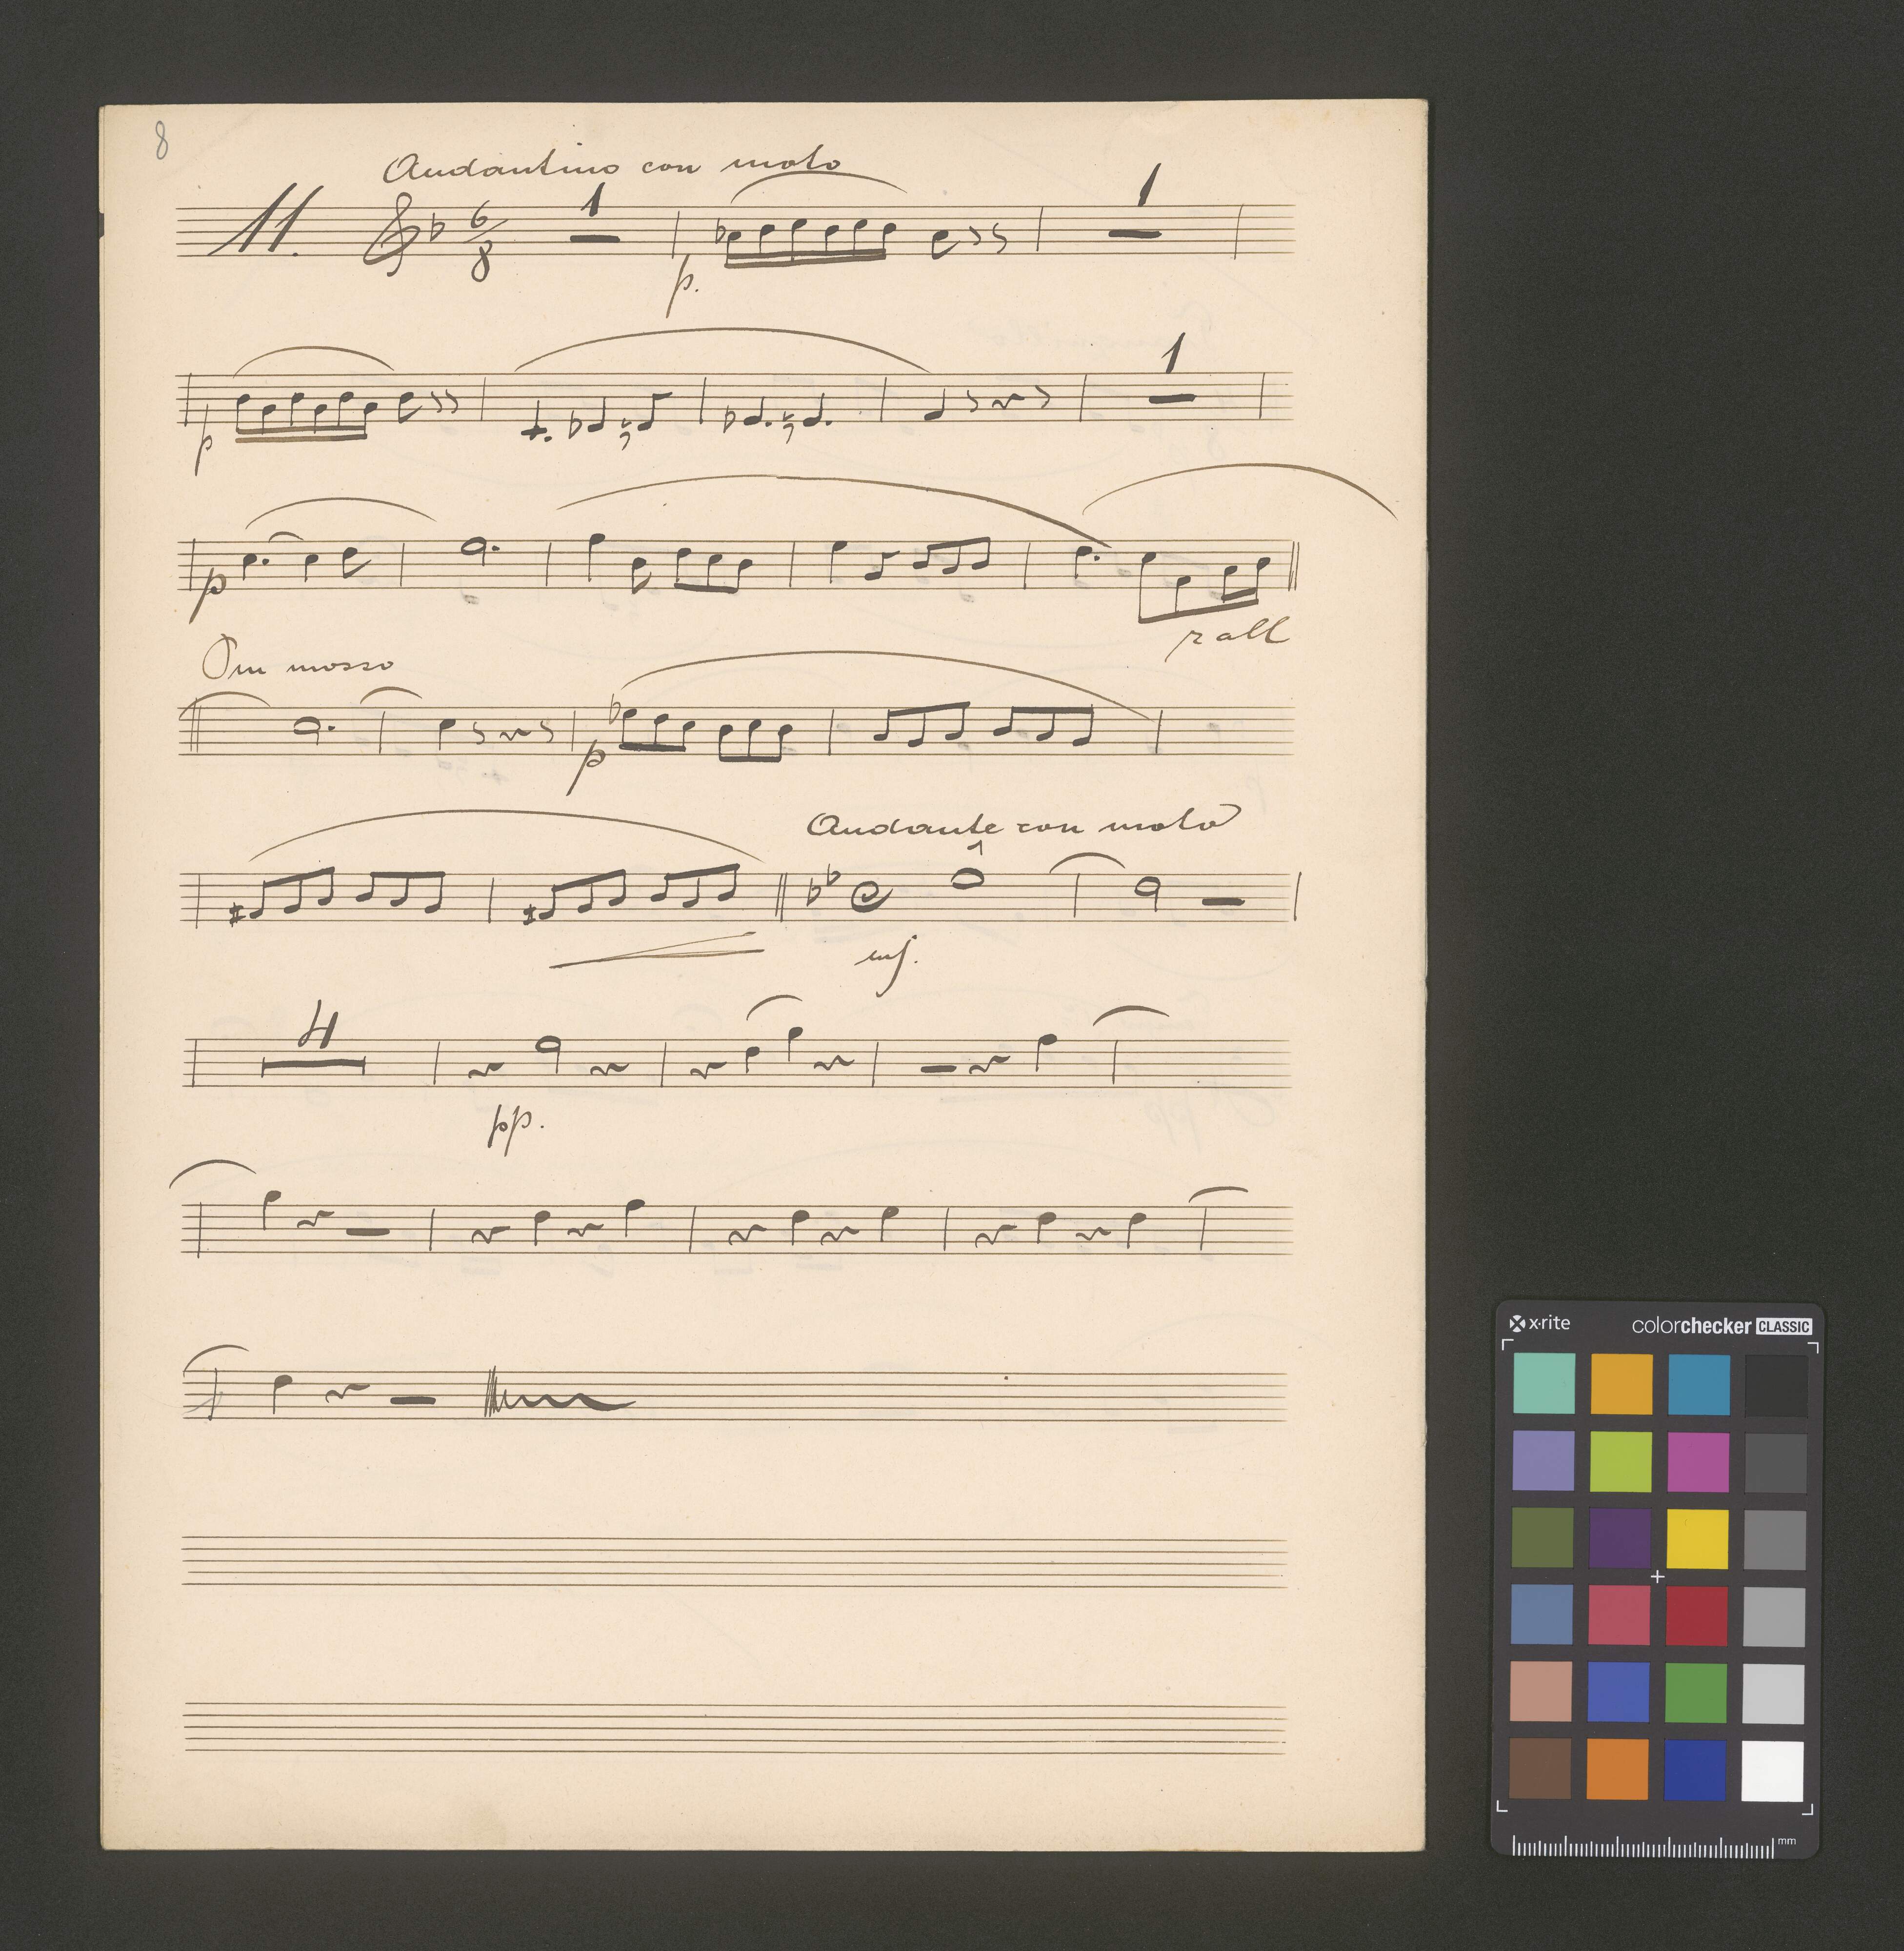 8
Andantino con moto
11. 6/8 1 1
p.
1
p
p
rall
Piu mosso
p
Andante con moto
mf.
4
pp.
x-rite colorchecker CLASSIC
mm